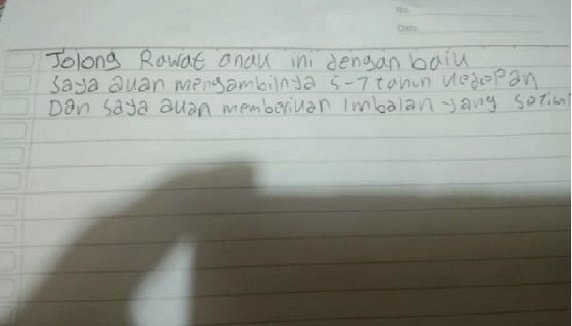 No
Date
Tolong Rawat anak ini dengan baik
Saya akan mengambilnya 5-7 tahun kedepan
Dan saya akan memberikan Imbalan yang